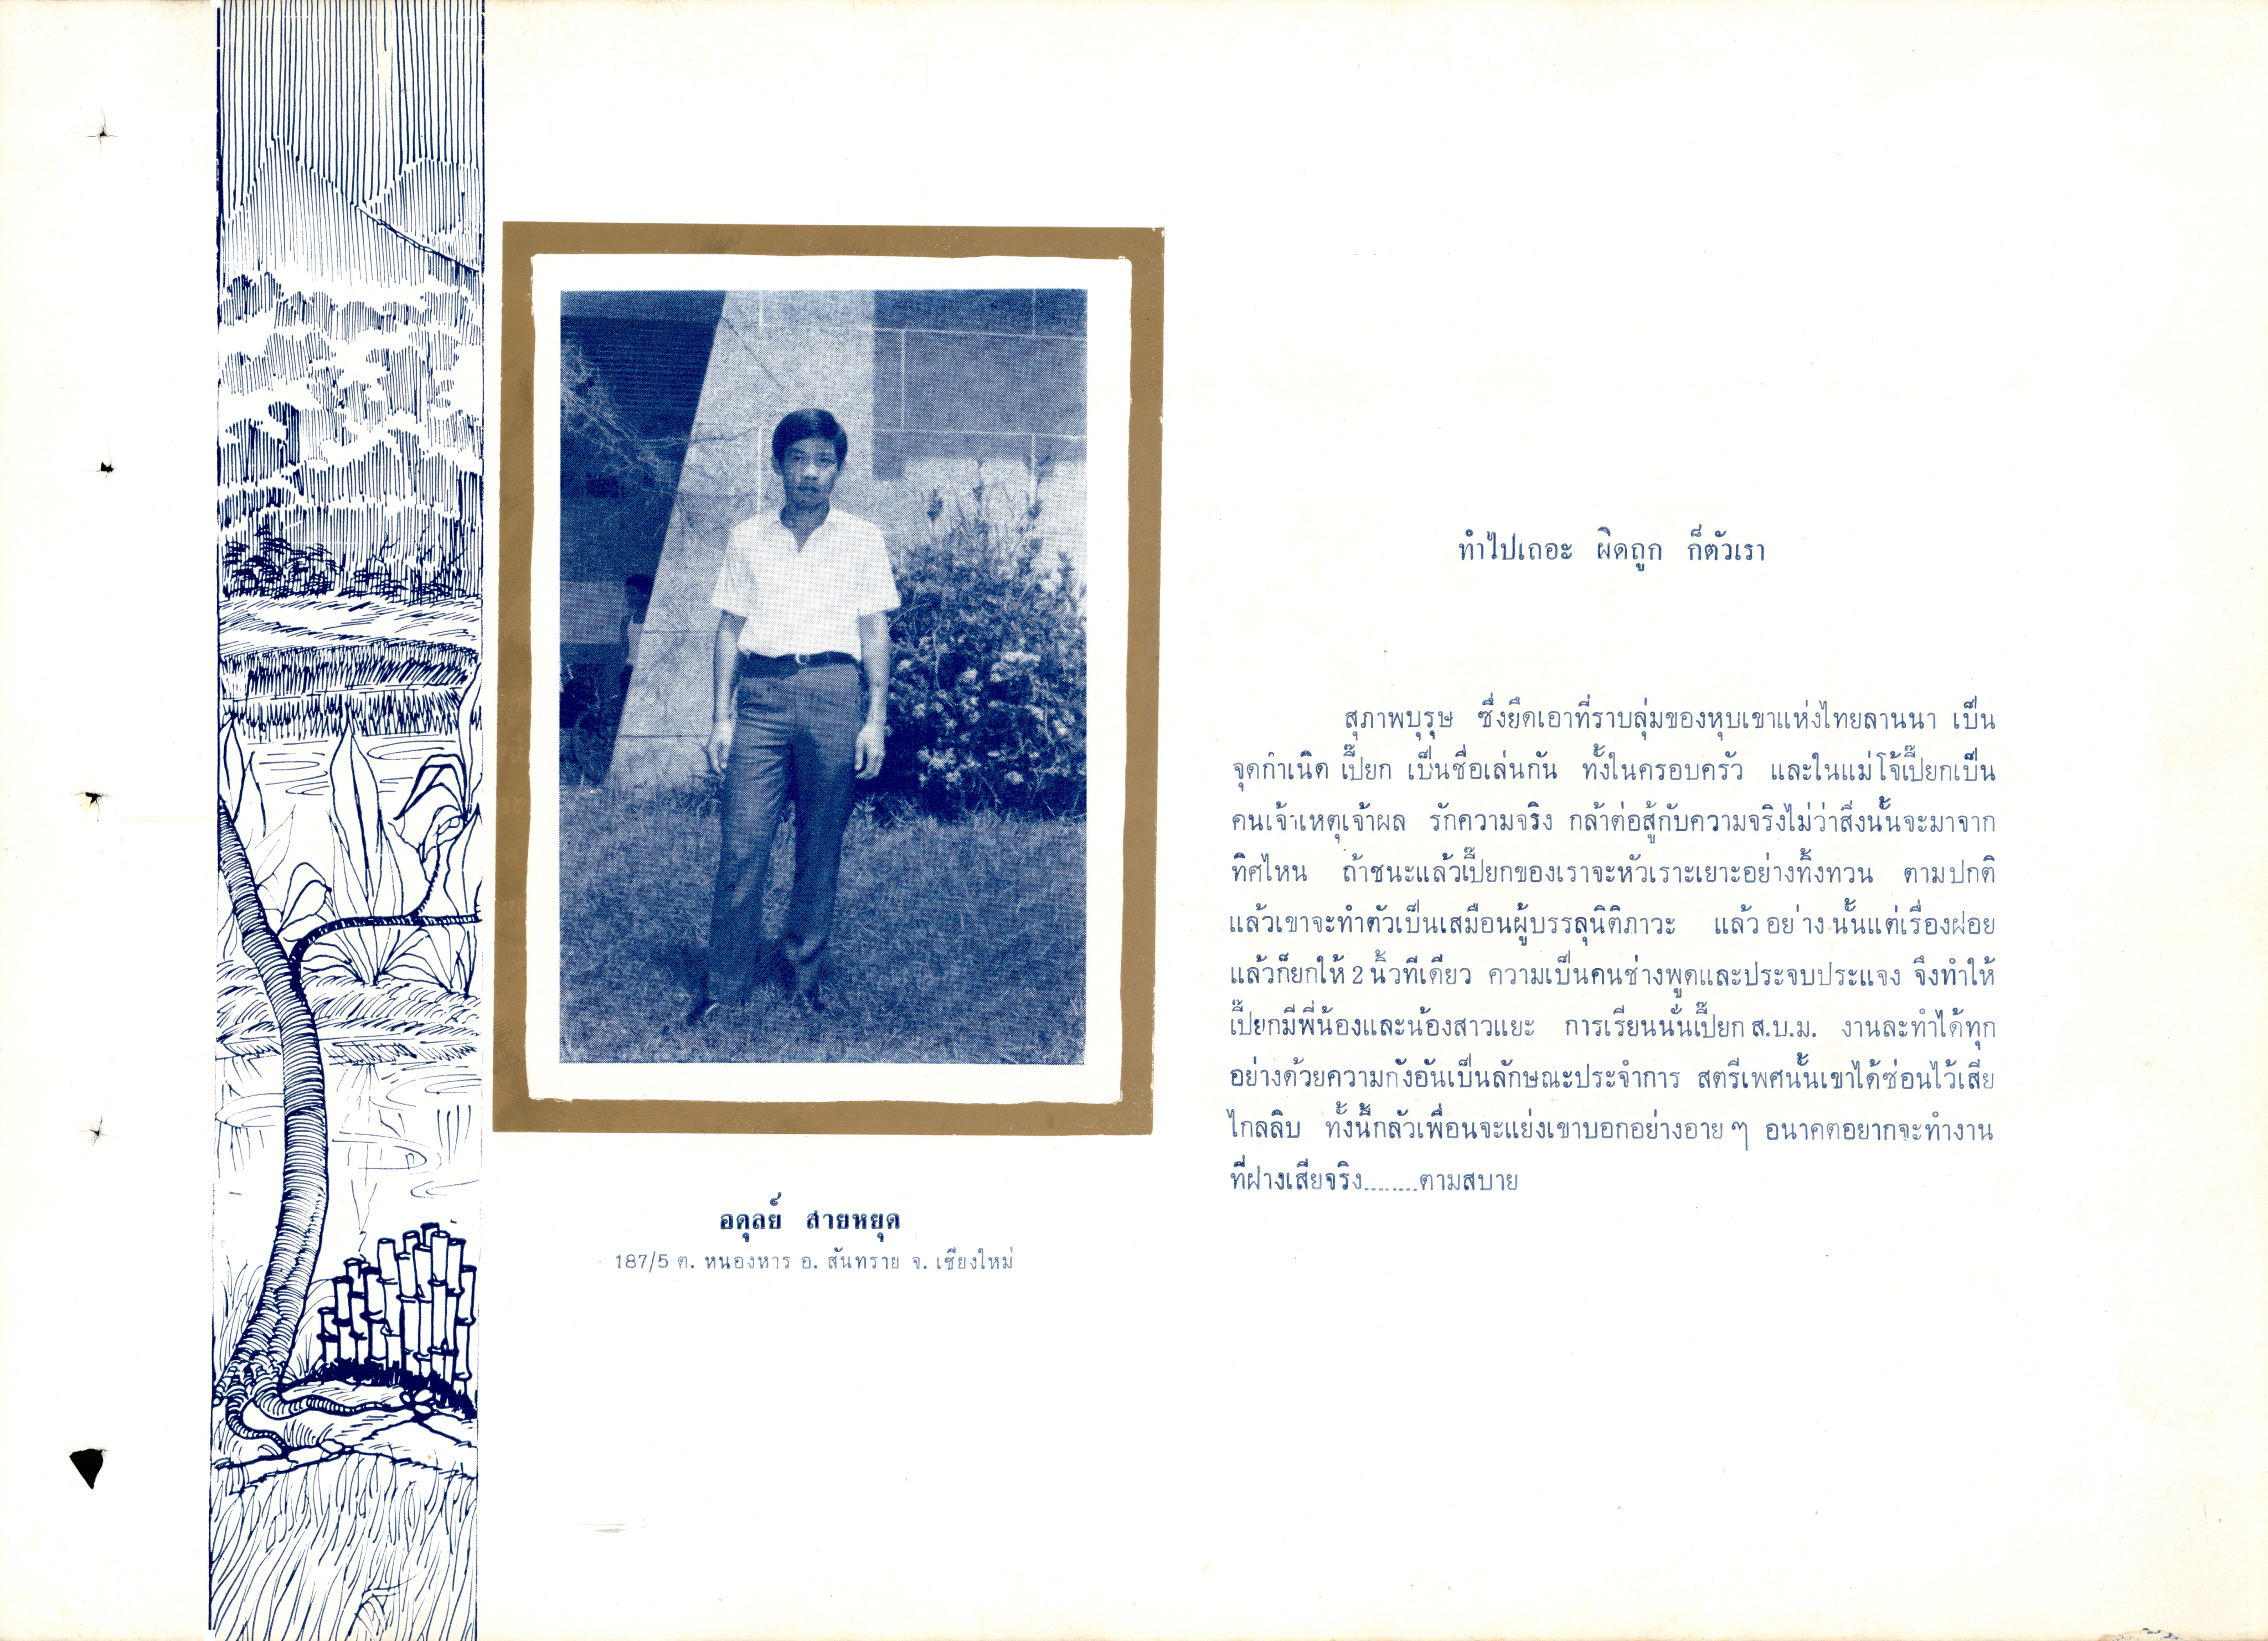 ทำไปเถอะ ผิดถูก ก็ตัวเรา
สุภาพบุรุษ ซึ่งยึดเอาที่ราบลุ่มของหุบเขาแห่งไทยลานนา เป็น
จุดกำเนิด เปี๊ยก เป็นชื่อเล่นกัน ทั้งในครอบครัว และในแม่โจ้เปี๊ยกเป็น
คนเจ้าเหตุเจ้าผล รักความจริง กล้าต่อสู้กับความจริงไม่ว่าสิ่งนั้นจะมาจาก
ทิศไหน ถ้าชนะแล้วเปี๊ยกของเราจะหัวเราะเยาะอย่างทิ้งทวน ตามปกติ
แล้วเขาจะทำตัวเป็นเสมือนผู้บรรลุนิติภาวะ แล้วอย่างนั้นแต่เรื่องฝอย
แล้วก็ยกให้ 2 นิ้วทีเดียว ความเป็นคนช่างพูดและประจบประแจง จึงทำให้
เปี๊ยกมีพี่น้องและน้องสาวแยะ การเรียนนั่นเปี๊ยก ส.บ.ม. งานละทำได้ทุก
อย่างด้วยความกังอันเป็นลักษณะประจำการ สตรีเพศนั้นเขาได้ซ่อนไว้เสีย
ไกลลิบ ทั้งนี้กลัวเพื่อนจะแย่งเขาบอกอย่างอาย ๆ อนาคตอยากจะทำงาน
ที่ฝางเสียจริง........ตามสบาย
อดุลย์ สายหยุด
187/5 ต. หนองหาร อ. สันทราย จ. เชียงใหม่